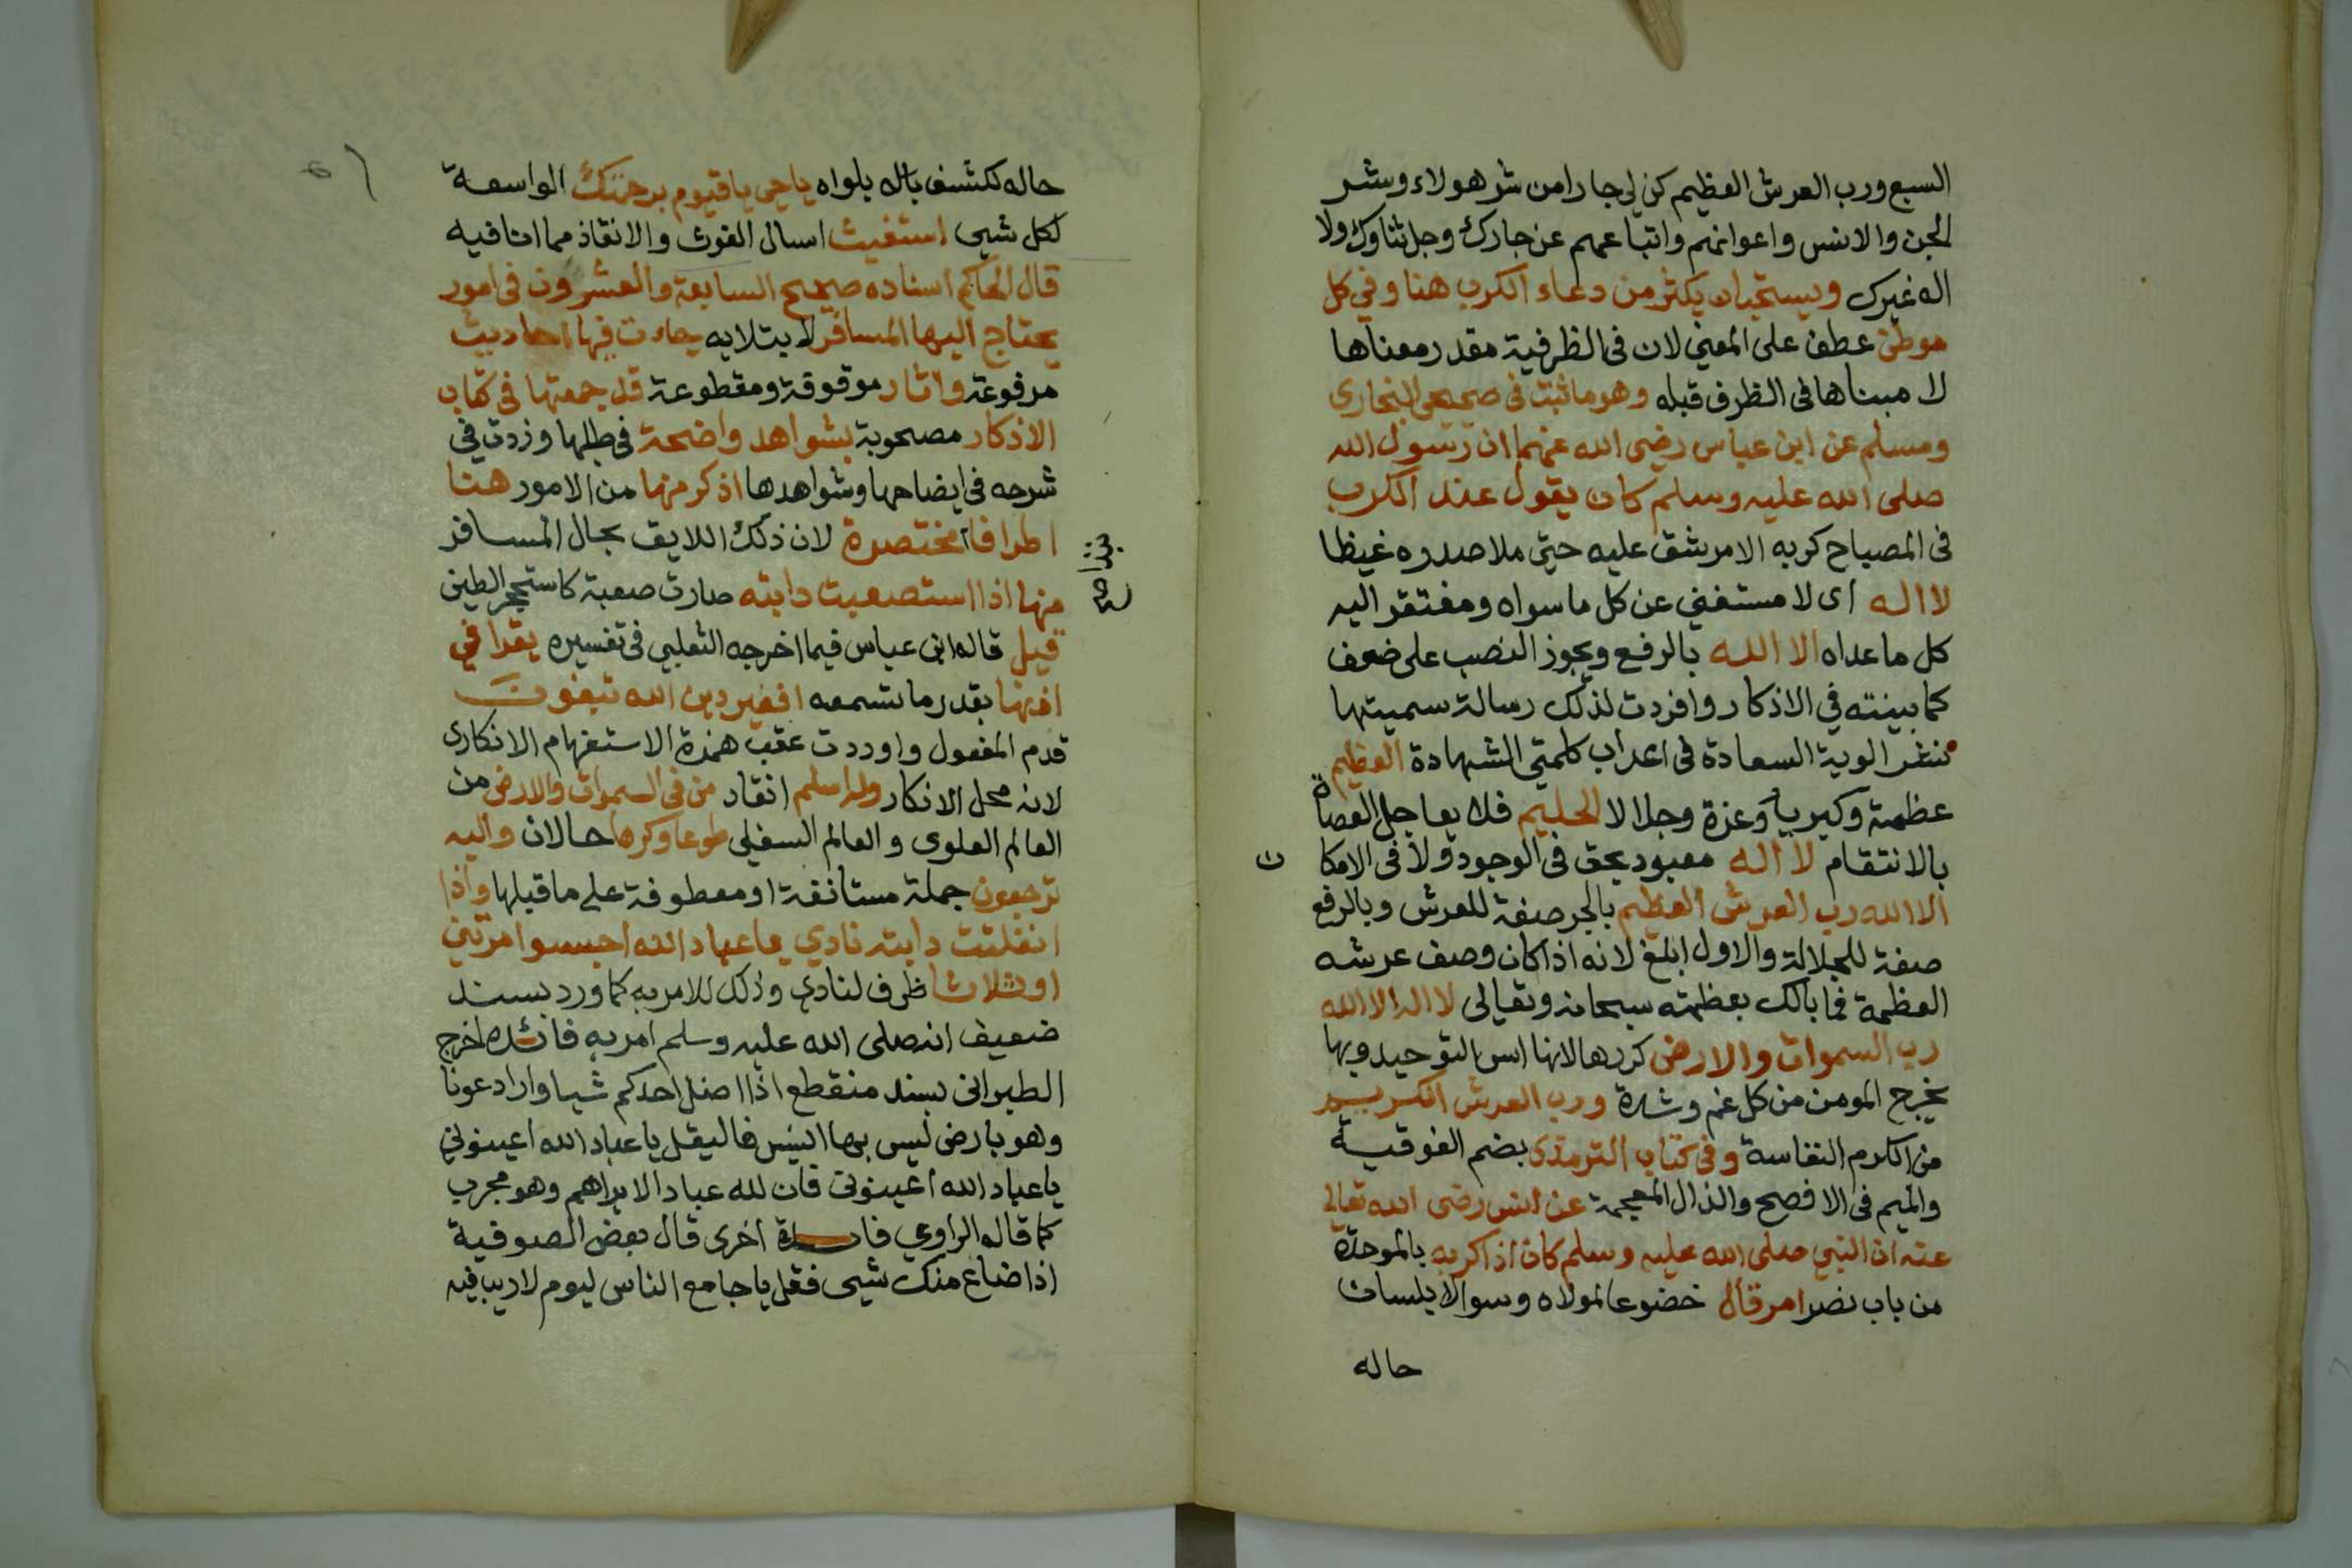 السبع ورب العرش العظيم كن لي جارا من شر هولاء وشر
الجن والانس واعوانهم واتباعهم عن جارك وجل ثناوك ولا
اله غيرك ويستحب ان يكثر من دعاء الكرب هنا وفي كل
موطن عطف على المعني لان في الظرفية مقدر معناها
لا مبناها في الظرف قبله وهو ما ثبت في صحيحي البخاري
ومسلم عن ابن عباس رضى الله عنهما ان رسول الله
صلى الله عليه وسلم كان يقول عند الكرب
في المصباح كربه الامر شق عليه حتى ملا صدره غيظا
لا اله اى لا مستغني عن كل ما سواه ومفتقر اليه
كل ما عداه الا الله بالرفع ويجوز النصب على ضعف
كما بينته في الاذكار وافردت لذلك رسالة سميتها
نشر الوية السعادة في اعراب كلمتي الشهادة العظيم
عظمة وكبرياً وعزة وجلالا الحليم فلا يعاجل العصاة
بالانتقام لا اله معبود بحق في الوجود ولا في الامكان
الا الله رب العرش العظيم بالجر صفة للعرش وبالرفع
صفة للجلالة والاول ابلغ لانه اذا كان وصف عرشه
العظمة فما بالك بعظمته سبحانه وتعالى لا اله الا الله
رب السموات والارض كررها لانها اس التوحيد وبها
يخرج المومن من كل غم وشدة ورب العرش الكريم
من الكرم النفاسة وفي كتاب الترمذى بضم الفوقية
والميم في الافصح والذال المعجمة عن انس رضى الله تعالى
عنه ان النبي صلى الله عليه وسلم كان اذا كربه بالموحدة
من باب نصر امر قال خضوعا لمولاه وسوالا بلسان
حاله
حاله لكشف باله بلواه يا حي يا قيوم برحمتك الواسعة
لكل شيى استغيث اسال الغوث والانقاذ مما انا فيه
قال الحاكم اسناده صحيح السابعة والعشرون في امور
يحتاج اليها المسافر لابتلايه جاءت فيها احاديث
مرفوعة واثار موقوفة ومقطوعة قد جمعتها في كتاب
الاذكار مصحوبة بشواهد واضحة في طلبها وزدت في
شرحه في ايضاحها وشواهدها اذكر منها من الامور هنا
اطرافا مختصرة لان ذلك اللايق بحال المسافر
منها اذا استصعبت دابته صارت صعبة كاستحجر الطين
قيل قاله ابن عباس فيما اخرجه الثعلبي في تفسيره يقرا في
اذنها بقدر ما تسمعه افغير دين الله تبغون
قدم المفعول واوردت عقب همزة الاستفهام الانكارى
لانه محل الانكار وله اسلم انقاد من في السموات والارض من
العالم العلوى والعالم السفلي طوعا وكرها حالان واليه
ترجعون جملة مستانفة او معطوفة على ما قبلها واذا
انفلتت دابته نادي يا عباد الله احبسوا مرتين
او ثلاثا ظرف لنادي وذلك للامر به كما ورد بسند
ضعيف انه صلى الله عليه وسلم امر به فائدة اخرج
الطبراني بسند منقطع اذا اضل احدكم شيا واراد عونا
وهو بارض ليس بها انيس فاليقل يا عباد الله اعينوني
يا عباد الله اعينوني فان لله عباد الا يراهم وهو مجرب
كما قاله الراوي فائدة اخرى قال بعض الصوفية
اذا ضاع منك شيى فقل يا جامع الناس ليوم لا ريب فيه